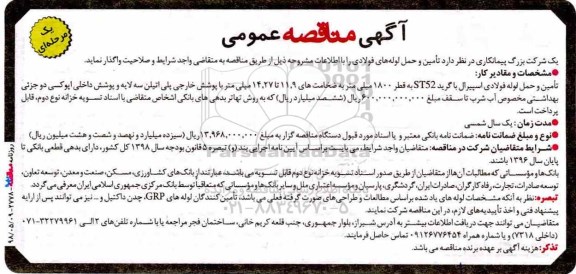 آگهی مناقصه عمومی
یک مرحله‌ای
یک شرکت بزرگ پیمانکاری در نظر دارد تأمین و حمل لوله‌های فولادی را با اطلاعات مشروحه ذیل از طریق مناقصه به متقاضی واجد شرایط و صلاحیت واگذار نماید.
●مشخصات و مقادیر کار:
تأمین و حمل لوله فولادی اسپیرال با گرید ST52 به قطر ۱۸۰۰ میلی متر به ضخامت های ۱۱,۹ تا ۱۴,۲۷ میلی متر با پوشش خارجی پلی اتیلن سه لایه و پوشش داخلی اپوکسی دو جزئی
بهداشتی مخصوص آب شرب تا سقف مبلغ ۶۰۰,۰۰۰,۰۰۰,۰۰۰ ریال (ششصد میلیارد ریال) که به روش تهاتر بدهی های بانکی اشخاص متقاضی با اسناد تسویه خزانه نوع دوم، قابل
پرداخت است.
●مدت زمان: یک سال شمسی
●نوع و مبلغ ضمانت نامه: ضمانت نامه بانکی معتبر و یا اسناد مورد قبول دستگاه مناقصه گزار به مبلغ ۱۳,۹۶۸,۰۰۰,۰۰۰ ریال (سیزده میلیارد و نهصد و شصت و هشت میلیون ریال)
●شرایط متقاضیان شرکت در مناقصه: متقاضیان واجد شرایط، می بایست بر اساس آیین نامه اجرایی بند (و) تبصره ۵ قانون بودجه سال ۱۳۹۸ کل کشور، دارای بدهی قطعی بانکی تا
پایان سال ۱۳۹۶ باشند.
بانک‌ها و مؤسساتی که مطالبات آن‌ها از متقاضیان از طریق صدور اسناد تسویه خزانه نوع دوم قابل تسویه می باشند، عبارتند از بانک های کشاورزی، مسکن، صنعت و معدن، توسعه تعاون،
توسعه صادرات، تجارت، رفاه کارگران، صادرات ایران، گردشگری، پارسیان و مؤسسه اعتباری ملل و سایر بانک‌ها و مؤسساتی که متعاقبا توسط بانک مرکزی جمهوری اسلامی ایران معرفی می گردد.
تبصره: نظر به آنکه مشخصات لوله های یاد شده بر اساس مطالعات و طراحی های صورت گرفته فعلی می باشد، تأمین کنندگان لوله های GRP، چدن داکتیل و ... نیز می توانند پس از ارایه
پیشنهاد فنی و اخذ تأییدیه‌های لازم، در این مناقصه شرکت نمایند.
متقاضیان می توانند جهت دریافت اطلاعات بیشتر به آدرس شیراز، بلوار جمهوری، جنب قلعه کریم خانی، ساختمان فجر مراجعه یا با شماره تلفن‌های ۲ الی ۳۲۲۷۹۹۶۱-۰۷۱
(داخلی ۷۲۱۸) و یا شماره همراه ۰۹۱۲۶۷۷۶۴۵۴ تماس حاصل فرمایند.
تذکر: هزینه آگهی بر عهده برنده مناقصه می باشد.
ParsNamadData
۰۲۱-۸۸۳۴۹۶۷۰-۵
روزنامه